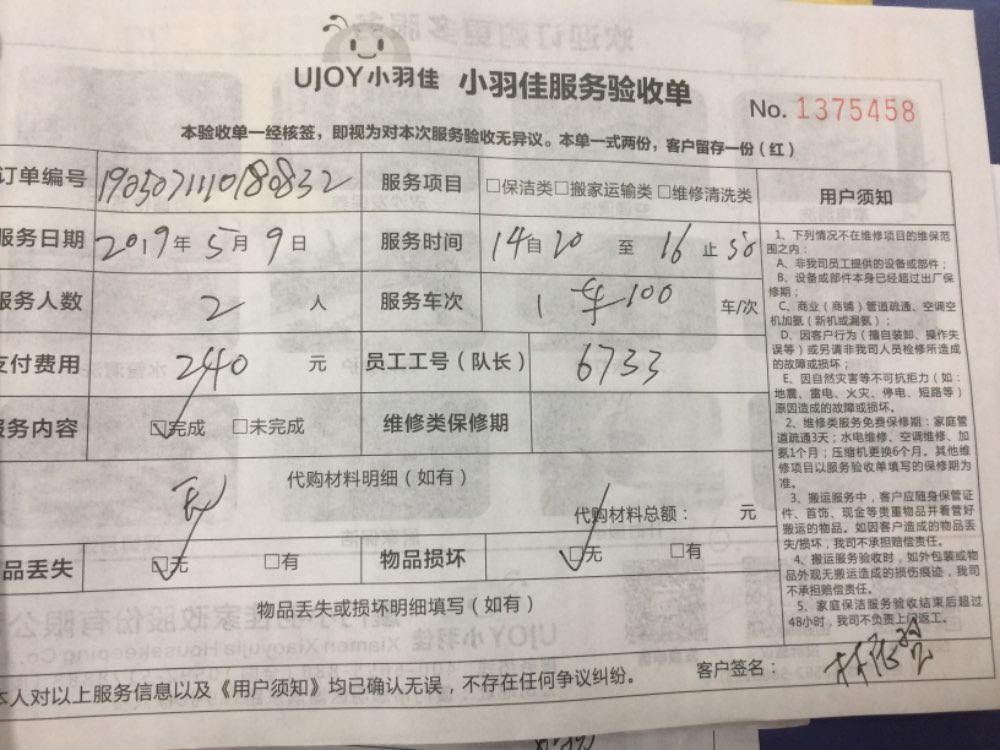 UJOY小羽佳 小羽佳服务验收单
No. 1375458
本验收单一经核签，即视为对本次服务验收无异议。本单一式两份，客户留存一份（红）
订单编号 190507111018083​2 服务项目 □保洁类□搬家运输类□维修清洗类
服务日期 2019年5月9日 服务时间 14自20至16止50
服务人数 2人 服务车次 1车100车/次
支付费用 2440元 员工工号（队长） 6733
服务内容 ☑完成 □未完成 维修类保修期
代购材料明细（如有）
无
代购材料总额： 元
品丢失 ☑无 □有 物品损坏 ☑无 □有
物品丢失或损坏明细填写（如有）
本人对以上服务信息以及《用户须知》均已确认无误，不存在任何争议纠纷。 客户签名：
用户须知
1、下列情况不在维修项目的维保范
围之内：
A、非我司员工提供的设备或部件；
B、设备或部件本身已经超过出厂保
修期；
C、商业（商铺）管道疏通、空调空
机加氨（新机或漏氨）；
D、因客户行为（擅自装卸、操作失
误等）或另请非我司人员检修所造成
的故障或损坏；
E、因自然灾害等不可抗拒力（如：
地震、雷电、火灾、停电、短路等）
原因造成的故障或损坏。
2、维修类服务免费保修期：家庭管
道疏通3天；水电维修、空调维修、加
氨1个月；压缩机更换6个月。其他维
修项目以服务验收单填写的保修期为
准。
3、搬运服务中，客户应随身保管证
件、首饰、现金等贵重物品并看管好
搬运的物品。如因客户造成的物品丢
失/损坏，我司不承担赔偿责任。
4、搬运服务验收时，如外包装或物
品外观无搬运造成的损伤痕迹，我司
不承担赔偿责任。
5、家庭保洁服务验收结束后超过
48小时，我司不负责上门返工。